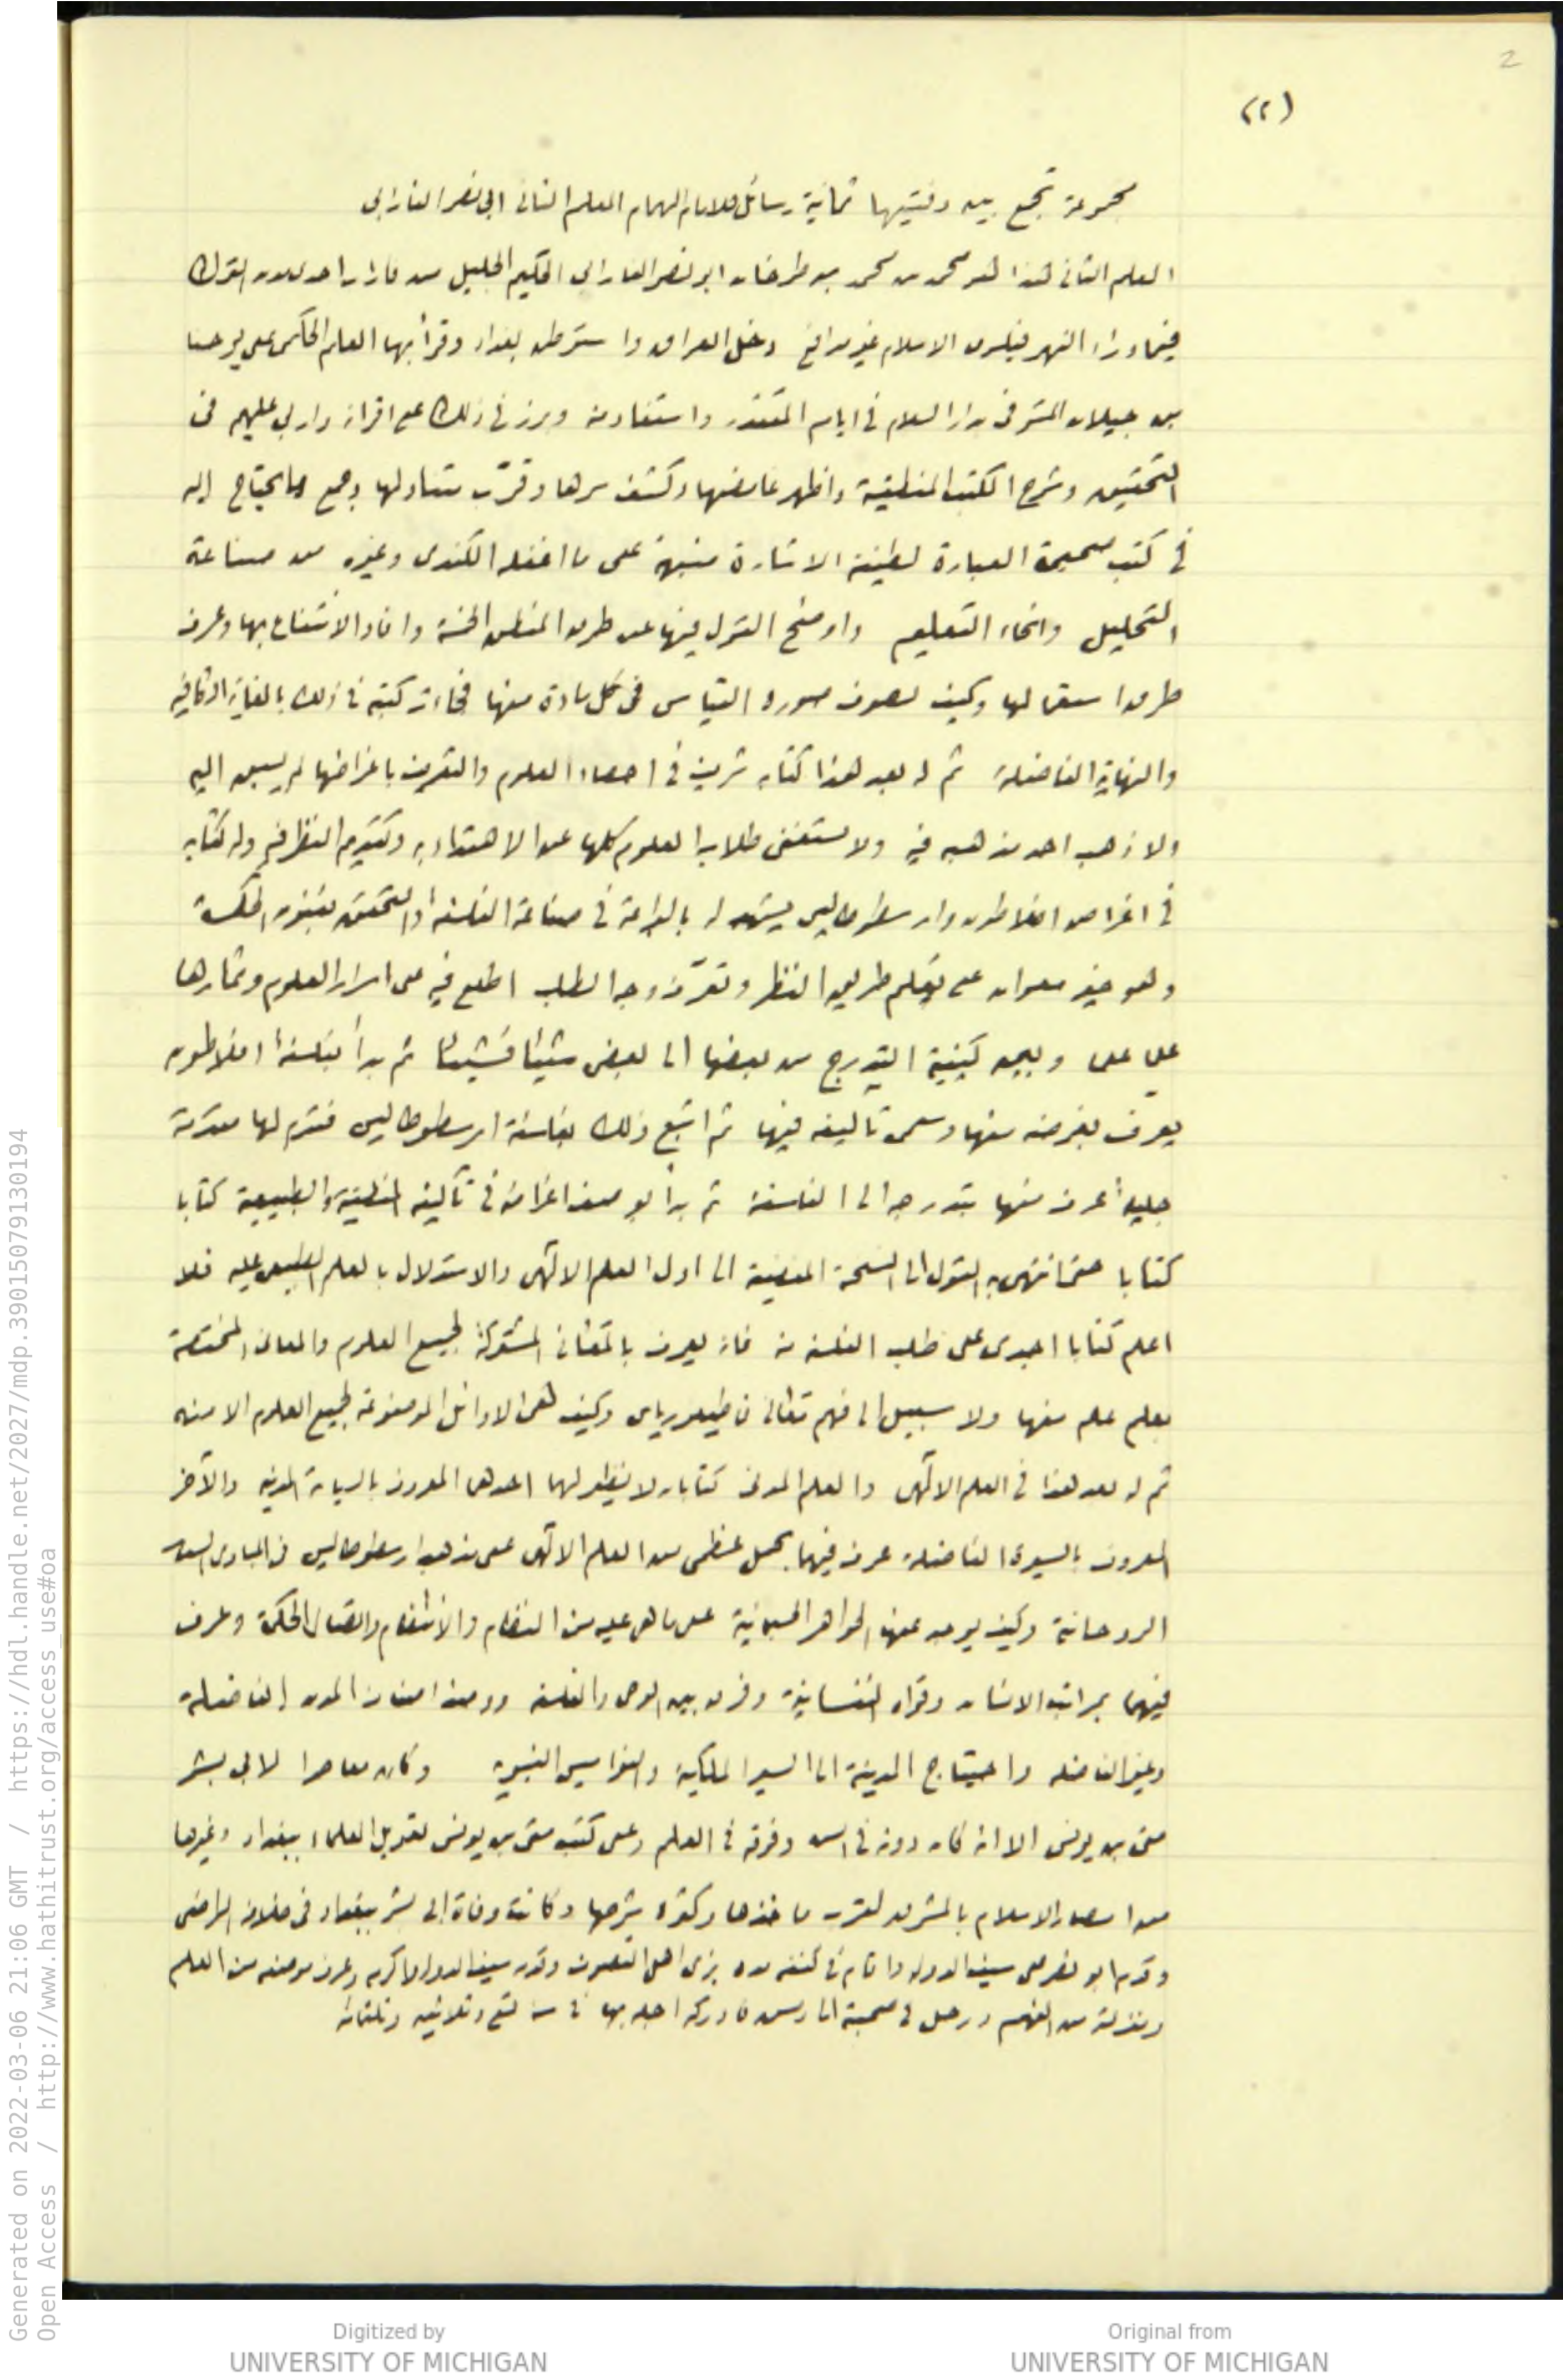 2
(٢)
مجموعة تجمع بين دفتيها ثمانية رسائل للامام الهمام المعلم الثانى ابى نصر الفارابى
المعلم الثانى هذا هو محمد بن محمد بن طرخان ابو نصر الفارابى الحكيم الجليل من فاراب احدى مدن الترك
فيما وراء النهر فيلسوف الاسلام غير مدافع دخل العراق واستوطن بغداد وقرأ بها العلم الحكمى على يوحنا
بن جيلان المتوفى بدار السلام فى ايام المقتدر واستفاد منه وبرز فى ذلك على اقرانه واربى عليهم فى
التحقيق وشرح الكتب المنطقية واظهر غامضها وكشف سرها وقرّب متناولها وجمع ما يحتاج اليه
فى كتب صحيحة العبارة لطيفة الاشارة منبهة على ما اغفله الكندى وغيره من صناعة
التحليل وانحاء التعليم واوضح القول فيها عن طرق المنطق الخمسة وافاد الانتفاع بها وعرف
طرق استعمالها وكيف تصرف صورة القياس فى كل مادة منها فجاءت كتبه فى ذلك بالغاية الكافية
والنهاية الفاضلة ثم له بعد هذا كتاب شريف فى احصاء العلوم والتعريف باغراضها لم يسبق اليه
ولا ذهب احد مذهبه فيه ولا يستغنى طلاب العلوم كلها عن الاهتداء به وتقديم النظر فيه وله كتاب
فى اغراض افلاطون وارسطوطاليس يشهد له بالبراعة فى صناعة الفلسفة والتحقق بفنون الحكمة
وهو خير معوان على تعلم طريق النظر وتعرّف وجه الطلب اطلع فيه على اسرار العلوم وثمارها
على على وبين كيفية التدرج من بعضها الى بعض شيئا فشيئا ثم بدأ بفلسفة افلاطون
يعرف بغرضه منها وسمى تآليفه فيها ثم اتبع ذلك بفلسفة ارسطوطاليس فقدم لها مقدمة
جليلة عرف منها بتدرجه الى الفلسفة ثم بدأ بوصف اغراضه فى تآليفه المنطقية والطبيعية كتابا
كتابا حتى انتهى به القول الى النسخة المفضية الى اول العلم الالهى والاستدلال بالعلم الطبيعى عليه فلا
اعلم كتابا اجدى على طلب الفلسفة منه فانه يعرف بالمعانى المشتركة لجميع العلوم والمعانى المختصة
بعلم علم منها ولا سبيل الى فهم معانى قاطيغورياس وكيف هى الاوائل الموضوعة لجميع العلوم الا منه
ثم له بعد هذا فى العلم الالهى والعلم المدنى كتابان لا نظير لهما احدهما المعروف بالسياسة المدنية والآخر
المعروف بالسيرة الفاضلة عرف فيهما بجمل عظمى من العلم الالهى على مذهب ارسطوطاليس فى المبادى الستة
الروحانية وكيف يوجد عنها الجواهر الجسمانية على ما هى عليه من النظام والانتظام واتصال الحكمة وعرف
فيهما بمراتب الانسان وقواه النفسانية وفرق بين الوحى والفلسفة ووصف اصناف المدن الفاضلة
وغير الفاضله واحتياج المدينة الى السير الملكية والنواميس النبوية وكان معاصرا لابى بشر
متى بن يونس الا انه كان دونه فى السن وفوقه فى العلم وعلى كتب متى بن يونس تعويل العلماء ببغداد وغيرها
من امصار الاسلام بالمشرق لقرب مأخذها وكثرة شرحها وكانت وفاة ابى بشر ببغداد فى خلافة الراضى
وقدم ابو نصر على سيف الدولة واقام فى كنفه مده بزى اهل التصوف وقدمه سيف الدولة واكرمه وعرف موضعه من العلم
ومنزلته من الفهم ورحل فى صحبته الى دمشق فادركه اجله بها فى سنة تسع وثلاثين وثلثمائة
Generated on 2022-03-06 21:06 GMT / https://hdl.handle.net/2027/mdp.39015079130194
Open Access / http://www.hathitrust.org/access_use#oa
Digitized by
UNIVERSITY OF MICHIGAN
Original from
UNIVERSITY OF MICHIGAN